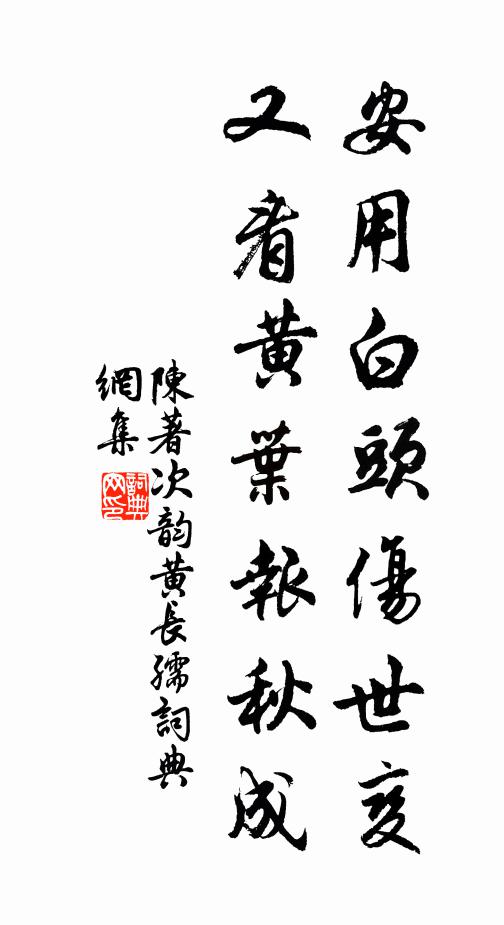 安用白頭傷世变
又看黄葉報秋成
陳著次韵黄長孺詞典
網集
詞典網印